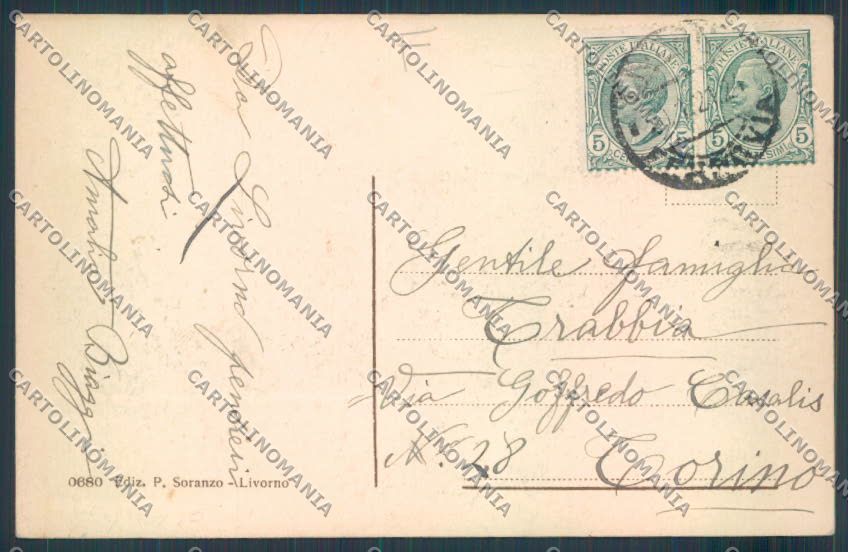 Da Livorno pensieri
affettuosi
Amalia Biagg
POSTE ITALIANE
POSTE ITALIANE
5
5
5
5
Gentile famiglia
Trabbia
Via Goffredo Casalis
N. 28 Torino
0680 Ediz. P. Soranzo - Livorno
CARTOLINOMANIA